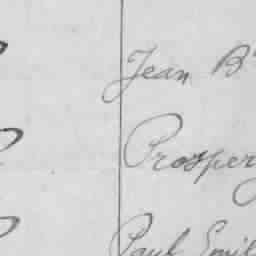 Jean B
Prosper
Paul Emil